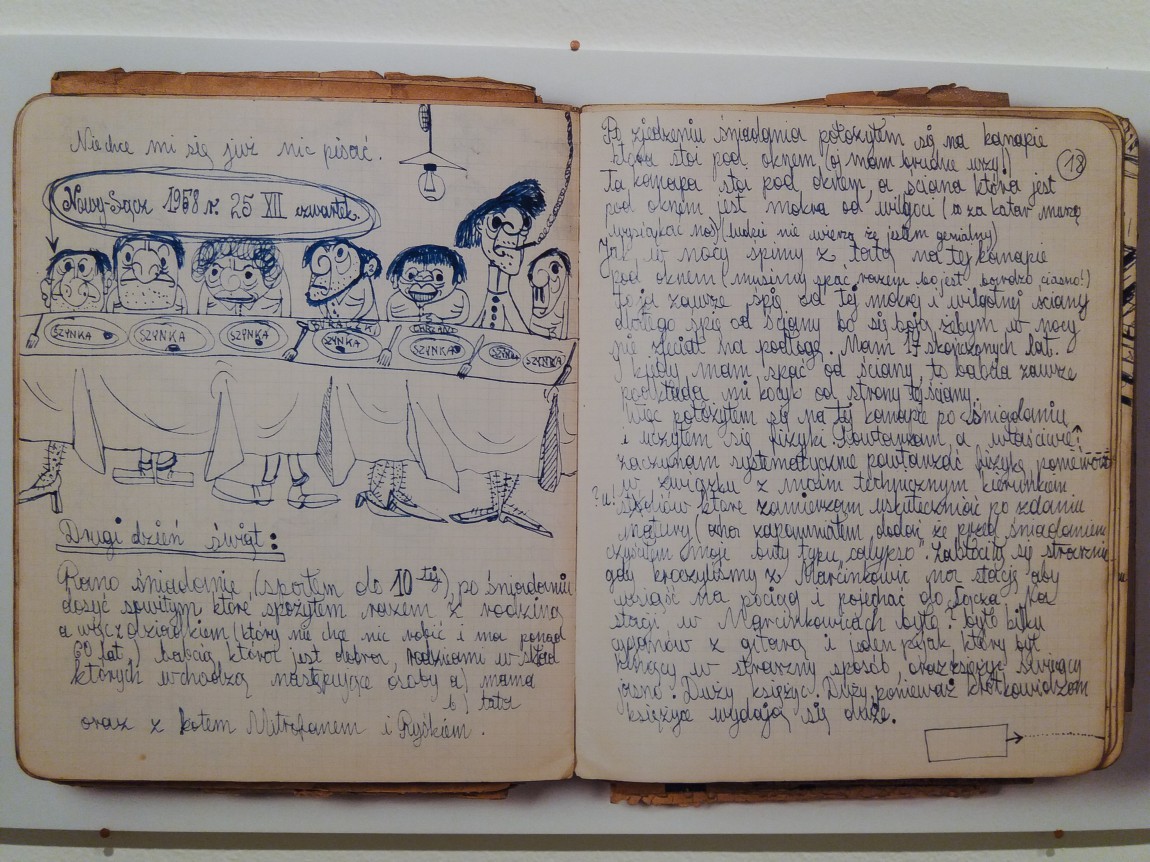 Nie chce mi się już nic pisać.
Nowy-Sącz 1958 r. 25 XII czwartek
SZYNKA SZYNKA SZYNKA SZYNKA SZYNKA SZYNKA SZYNKA
Drugi dzień świąt:
Rano śniadanie (spałem do 10-tej), po śniadaniu
dosyć sowitym które spożyłem razem z rodziną
a więc dziadkiem (który nie chce nic robić i ma ponad
60 lat) babcią która jest dobra, rodzicami w skład
których wchodzą następujące osoby a) mama
b) tata
oraz z kotem Mitrofanem i Ryśkiem.
18
Po zjedzeniu śniadania położyłem się na kanapie
która stoi pod oknem (oj mam brudne uszy!)
ta kanapa stoi pod oknem, a ściana która jest
pod oknem jest mokra od wilgoci (o za katar muszę
wysiąkać nos) (ludzie nie wierzą że jestem genialny)
Jak w nocy śpimy z tatą na tej kanapie
pod oknem (musimy spać razem bo jest bardzo ciasno!)
to ja zawsze śpię od tej mokrej i wilgotnej ściany
dlatego śpię od ściany bo się boję żebym w nocy
nie zleciał na podłogę. Mam 17 skończonych lat.
I kiedy mam spać od ściany to babcia zawsze
podkłada mi kocyk od strony tej ściany.
Więc położyłem się na tej kanapie po śniadaniu
i uczyłem się fizyki a właściwie
zaczynam systematycznie powtarzać fizykę ponieważ
w związku z moim technicznym kierunkiem
?u! studiów które zamierzam uskuteczniać po zdaniu
matury (acha zapomniałem dodać że przed śniadaniem
czyściłem moje buty typu "calypso". Zabłociły się strasznie
gdy kroczyliśmy z Marcinkowic na stację aby
wsiąść na pociąg i pojechać do Sącza. Na
stacji w Marcinkowicach było: było kilku
cyganów z gitarą i jeden pijak, który był
w straszny sposób, oraz księżyc świecący
jasno. Duży księżyc. Duży ponieważ krótkowidzom
księżyce wydają się duże.